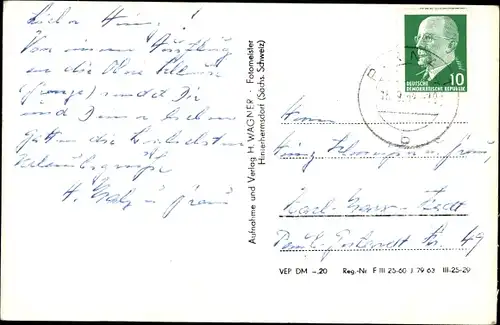 Lieber Heinz!
Von einem Ausflug
an die Obere Schleuse
sendet Dir
und Deiner lieben
die herzlichsten
Urlaubsgrüße
H. und Frau
Aufnahme und Verlag H. WAGNER - Fotomeister
Hinterhermsdorf (Sächs. Schweiz)
DEUTSCHE
DEMOKRATISCHE REPUBLIK
10
Herrn
Heinz u. Frau,
Karl-Marx-Stadt
Str. 49
VEP DM -.20 Reg.-Nr F III 25-60 J 79 63 III-25-29